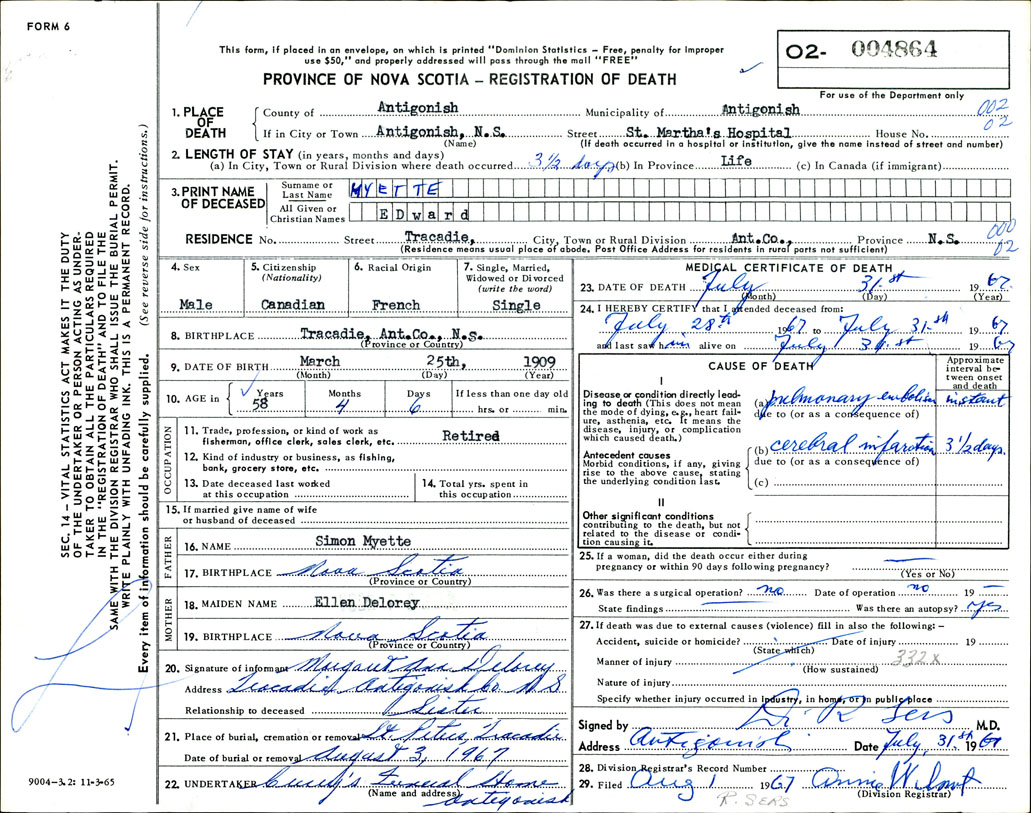 FORM 6
This form, if placed in an envelope, on which is printed "Dominion Statistics – Free, penalty for improper
use $50," and properly addressed will pass through the mail "FREE"
PROVINCE OF NOVA SCOTIA – REGISTRATION OF DEATH
O2- 004864
For use of the Department only
1. PLACE OF DEATH
County of Antigonish Municipality of Antigonish 002
If in City or Town Antigonish, N.S. Street St. Martha's Hospital House No. 02
(Name) (If death occurred in a hospital or institution, give the name instead of street and number)
2. LENGTH OF STAY (in years, months and days)
(a) In City, Town or Rural Division where death occurred 3 1/2 days (b) In Province Life (c) In Canada (if immigrant)
3. PRINT NAME OF DECEASED
Surname or Last Name MYETTE
All Given or Christian Names EDward
RESIDENCE No. Street Tracadie, City, Town or Rural Division Ant.Co., Province N.S. 000
(Residence means usual place of abode. Post Office Address for residents in rural parts not sufficient) 02
4. Sex Male
5. Citizenship (Nationality) Canadian
6. Racial Origin French
7. Single, Married, Widowed or Divorced (write the word) Single
8. BIRTHPLACE Tracadie, Ant.Co., N.S.
(Province or Country)
9. DATE OF BIRTH March 25th, 1909
(Month) (Day) (Year)
10. AGE in Years Months Days If less than one day old
58 4 6 hrs. or min.
OCCUPATION
11. Trade, profession, or kind of work as
fisherman, office clerk, sales clerk, etc. Retired
12. Kind of industry or business, as fishing,
bank, grocery store, etc.
13. Date deceased last worked
at this occupation
14. Total yrs. spent in
this occupation
15. If married give name of wife
or husband of deceased
FATHER
16. NAME Simon Myette
17. BIRTHPLACE Nova Scotia
(Province or Country)
MOTHER
18. MAIDEN NAME Ellen Delorey
19. BIRTHPLACE Nova Scotia
(Province or Country)
20. Signature of informant Margaret Ann Delorey
Address Tracadie, Antigonish Co. N S
Relationship to deceased Sister
21. Place of burial, cremation or removal St. Peters, Tracadie
Date of burial or removal August 3, 1967
22. UNDERTAKER Funeral Home
(Name and address) Antigonish
MEDICAL CERTIFICATE OF DEATH
23. DATE OF DEATH July 31.st 1967
(Month) (Day) (Year)
24. I HEREBY CERTIFY that I attended deceased from:
July 28th 1967 to July 31.st 1967
and last saw him alive on July 31.st 1967
CAUSE OF DEATH
Approximate interval between onset and death
I
Disease or condition directly leading to death (This does not mean
the mode of dying, e.g., heart failure, asthenia, etc. It means the
disease, injury, or complication
which caused death.)
(a) pulmonary embolism instant
due to (or as a consequence of)
Antecedent causes
Morbid conditions, if any, giving
rise to the above cause, stating
the underlying condition last.
(b) cerebral infarction 3 1/2 days.
due to (or as a consequence of)
(c)
II
Other significant conditions
contributing to the death, but not
related to the disease or condition causing it.
25. If a woman, did the death occur either during
pregnancy or within 90 days following pregnancy?
(Yes or No)
26. Was there a surgical operation? no Date of operation no 19 –
State findings Was there an autopsy? yes
27. If death was due to external causes (violence) fill in also the following: –
Accident, suicide or homicide? Date of injury 19
(State which)
Manner of injury 332x
(How sustained)
Nature of injury
Specify whether injury occurred in industry, in home, or in public place
Signed by Dr R Sers M.D.
Address Antigonish Date July, 31.st 1967
28. Division Registrar's Record Number
29. Filed Aug 1 1967
(Division Registrar)
R. SERS
SEC. 14 – VITAL STATISTICS ACT MAKES IT THE DUTY
OF THE UNDERTAKER OR PERSON ACTING AS UNDER-
TAKER TO OBTAIN ALL THE PARTICULARS REQUIRED
IN THE "REGISTRATION OF DEATH" AND TO FILE THE
SAME WITH THE DIVISION REGISTRAR WHO SHALL ISSUE THE BURIAL PERMIT.
WRITE PLAINLY WITH UNFADING INK. THIS IS A PERMANENT RECORD.
Every item of information should be carefully supplied. (See reverse side for instructions.)
9004-3.2: 11-3-65